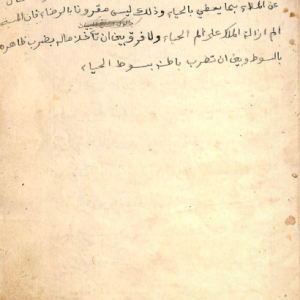 عن الملاء بما يعطي بالحياء وذلك ليس مقرونا بالرضاء فان
الم ازالة الملك على الم الحياء ولا فرق بين ان تأخذ ماله بضرب ظاهره
بالسوط وبين ان تضرب باطنه بسوط الحياء